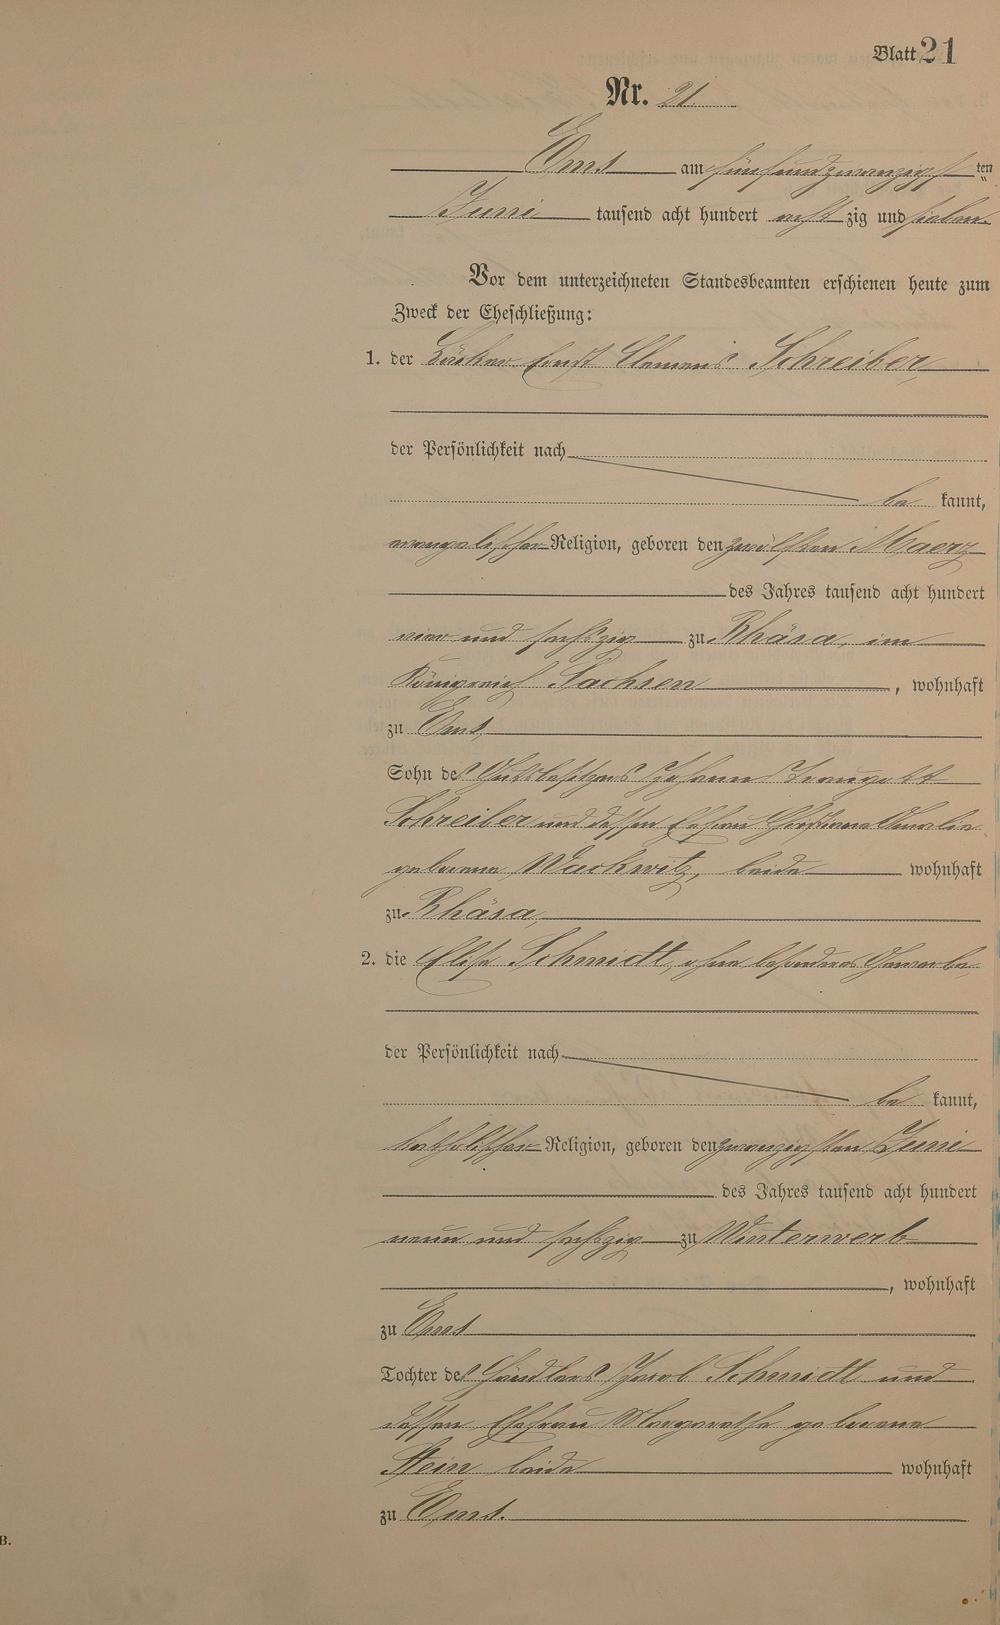 Blatt 21
Nr. 21.
Ems am fünfundzwanzigsten
Juni tausend acht hundert achtzig und sieben.
Vor dem unterzeichneten Standesbeamten erschienen heute zum
Zweck der Eheschließung:
1. der Bäcker Ernst Clemens Schreiber,
der Persönlichkeit nach
be kannt,
evangelischer Religion, geboren den zwölften Maerz
des Jahres tausend acht hundert
vier und sechszig zu Rhäsa, im
Königreich Sachsen, wohnhaft
zu Ems,
Sohn des Gutsbesitzers Johann Traugott
Schreiber und dessen Ehefrau Christiana Amalia
geborene Wackwitz, beide wohnhaft
zu Rhäsa,
2. die Elise Schmidt, ohne besonderes Gewerbe,
der Persönlichkeit nach
be kannt,
katholischer Religion, geboren den zwanzigsten Juni
des Jahres tausend acht hundert
neun und sechszig zu Winterwerb
, wohnhaft
zu Ems
Tochter des Händlers Jacob Schmidt und
dessen Ehefrau Margarethe geborene
Stein beide wohnhaft
zu Ems.
B.